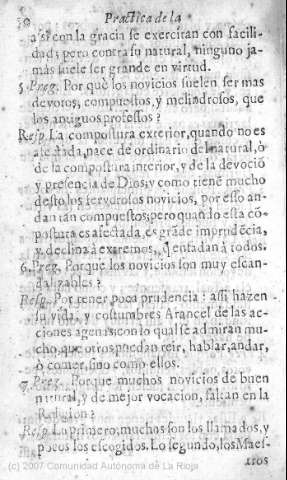 50 Practica de la
assi con la gracia se exercitan con facili-
dad; pero contra su natural, ninguno ja-
más suele ser grande en virtud.
5. Preg. Por què los novicios suelen ser mas
devotos, compuestos, y melindrosos, que
los antiguos professos?
Resp. La compostura exterior, quando no es
afectada, nace de ordinario del natural, ò
de la compostura interior, y de la devociõ
y presencia de Dios; y como tienẽ mucho
desto los fervorosos novicios, por esso an-
dan tan compuestos; pero quando esta cõ-
postura es afectada, es grãde imprudẽcia,
y declina à extremos, q̃ enfadan à todos.
6. Preg. Porquè los novicios son muy escan-
dalizables?
Resp. Por tener poca prudencia: assi hazen
su vida, y costumbres Arancel de las ac-
ciones agenas: con lo qual se admiran mu-
cho, que otros puedan reir, hablar, andar,
ò comer, sino como ellos.
7. Preg. Porque muchos novicios de buen
natural, y de mejor vocacion, faltan en la
Religion?
Resp. Lo primero, muchos son los llamados, y
pocos los escogidos. Lo segundo, los Maes-
tros
(c) 2007 Comunidad Autónoma de La Rioja